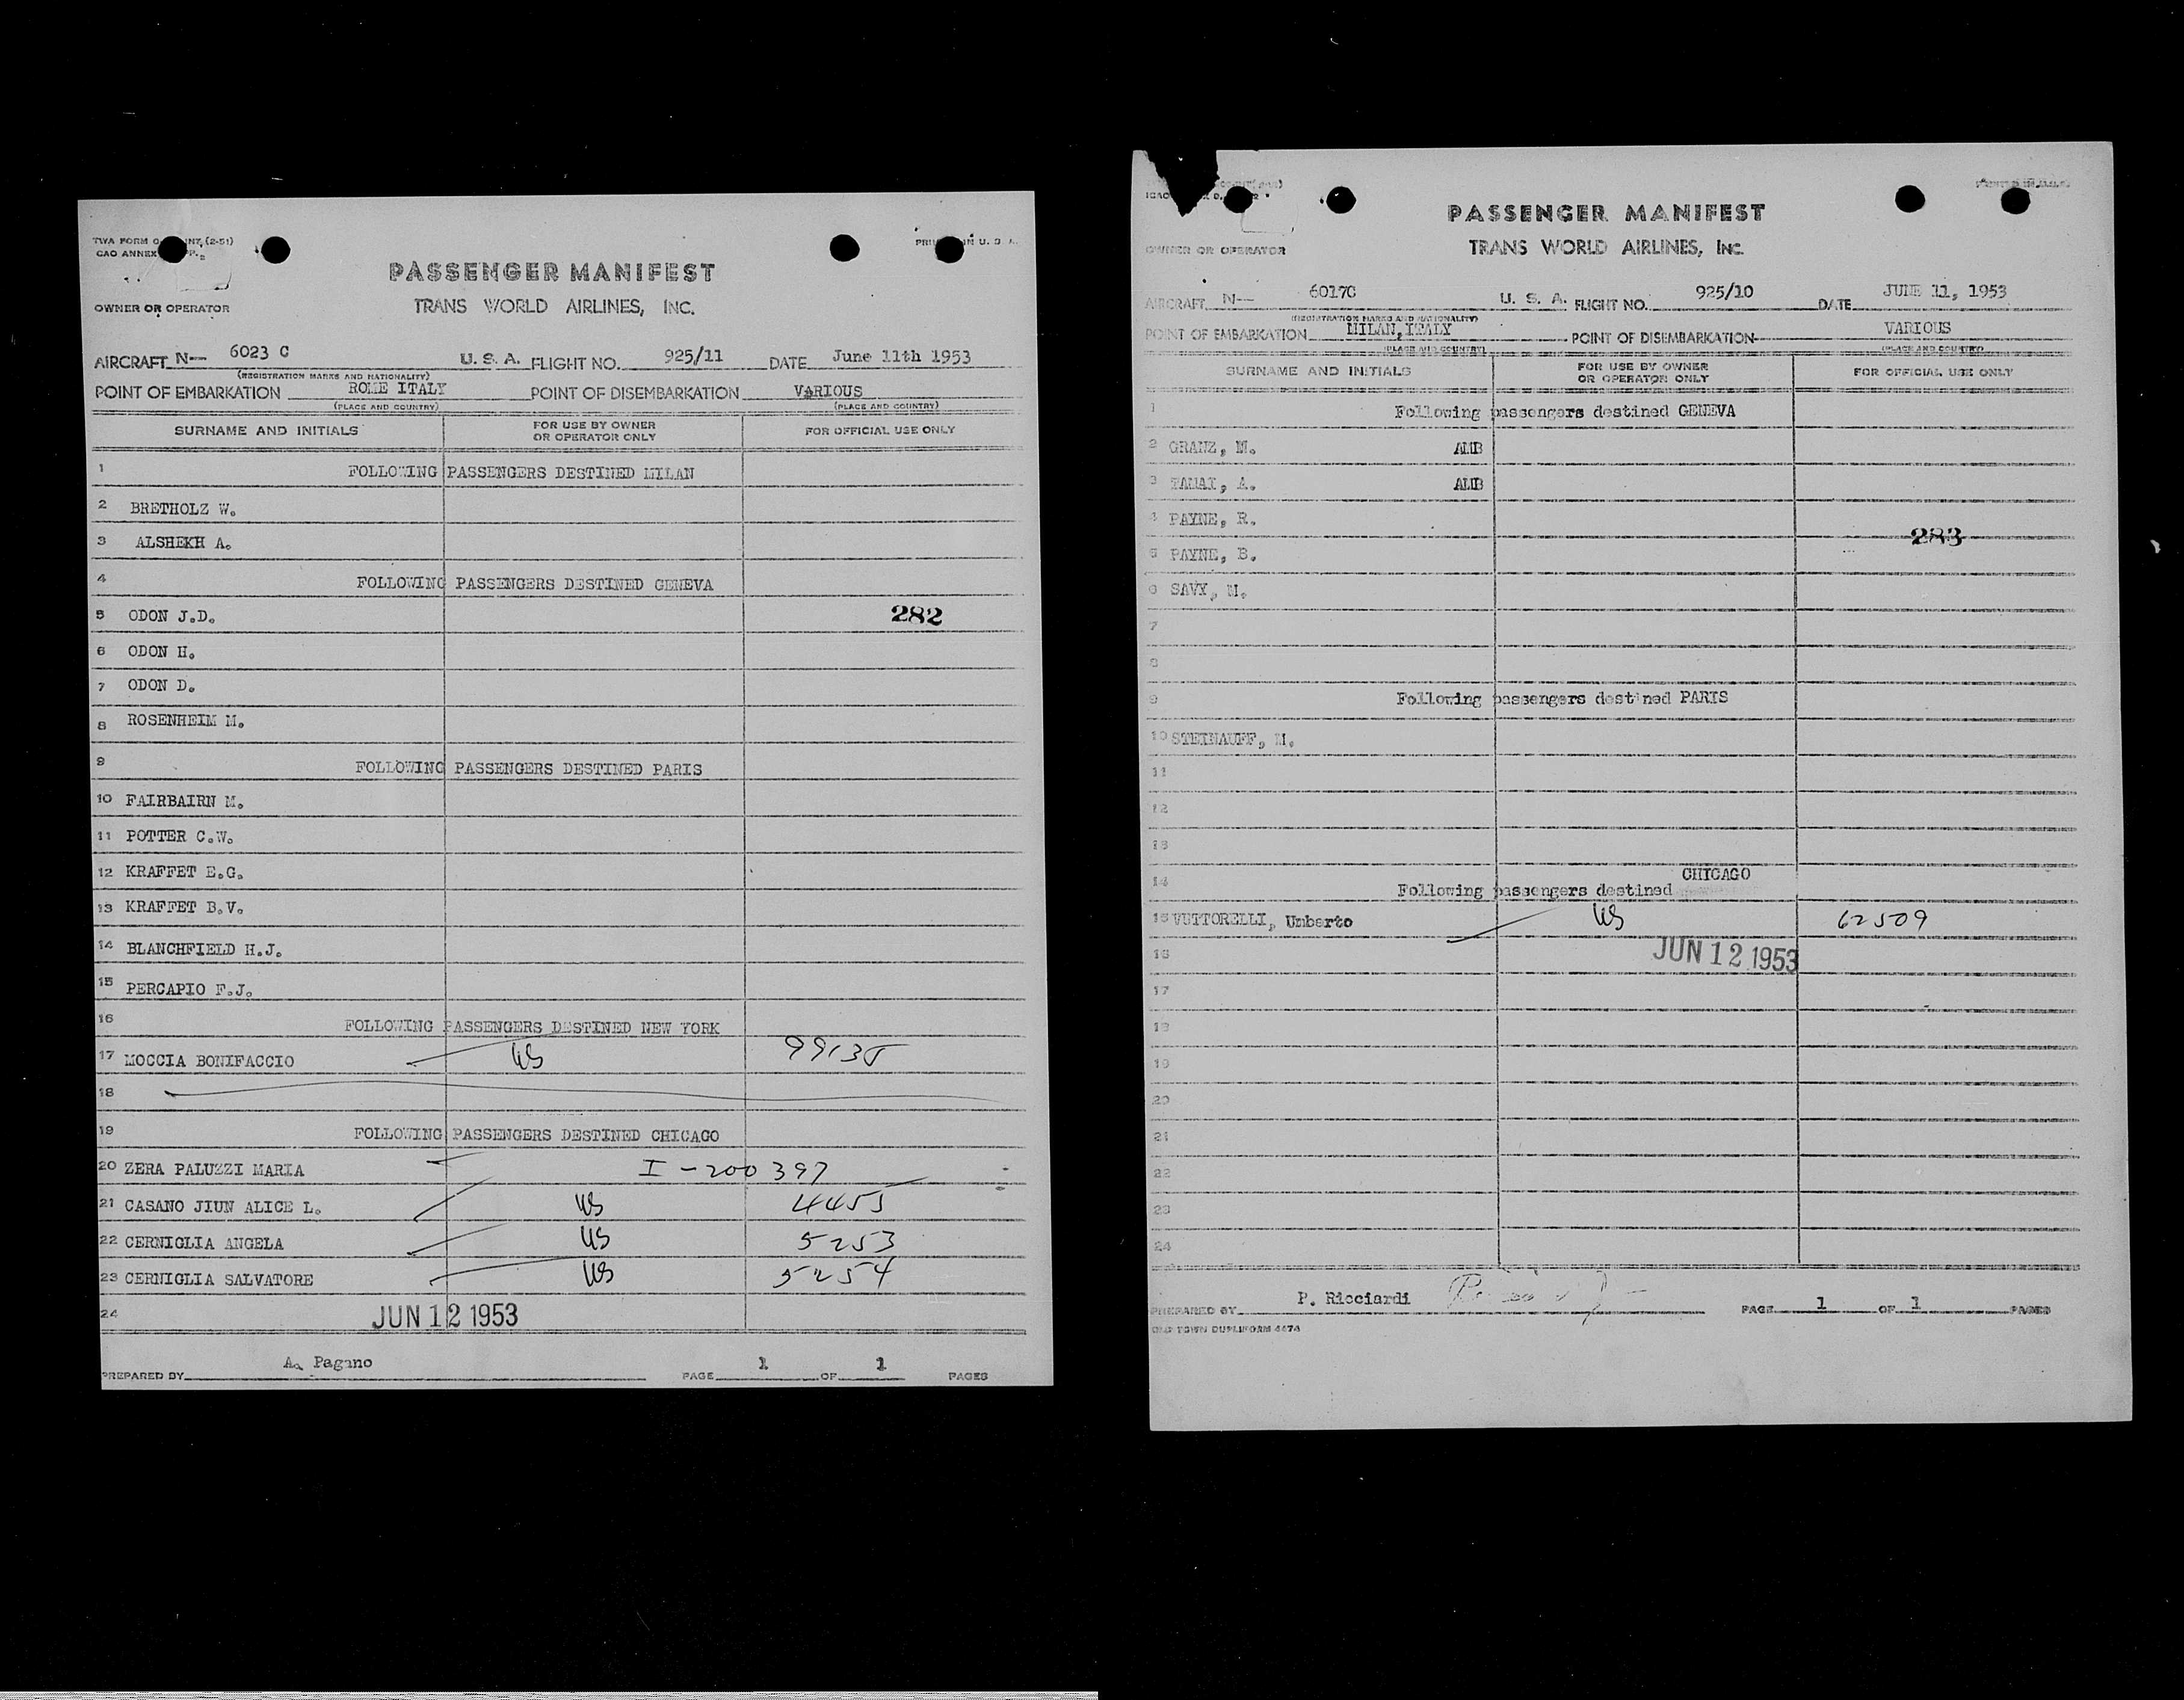 TWA FORM
(2-51)
PRINTED IN U. S. A.
PASSENGER MANIFEST
TRANS WORLD AIRLINES, INC.
OWNER OR OPERATOR
AIRCRAFT N— 6023 C U. S. A. FLIGHT NO. 925/11 DATE June 11th 1953
(REGISTRATION MARKS AND NATIONALITY)
POINT OF EMBARKATION ROME ITALY POINT OF DISEMBARKATION VARIOUS
(PLACE AND COUNTRY) (PLACE AND COUNTRY)
SURNAME AND INITIALS FOR USE BY OWNER OR OPERATOR ONLY FOR OFFICIAL USE ONLY
1 FOLLOWING PASSENGERS DESTINED MILAN
2 BRETHOLZ W.
3 ALSHEKH A.
4 FOLLOWING PASSENGERS DESTINED GENEVA
5 ODON J.D. 282
6 ODON H.
7 ODON D.
8 ROSENHEIM M.
9 FOLLOWING PASSENGERS DESTINED PARIS
10 FAIRBAIRN M.
11 POTTER C.W.
12 KRAFFET E.G.
13 KRAFFET B.V.
14 BLANCHFIELD H.J.
15 PERCAPIO F.J.
16 FOLLOWING PASSENGERS DESTINED NEW YORK
17 MOCCIA BONIFACCIO US 99135
18
19 FOLLOWING PASSENGERS DESTINED CHICAGO
20 ZERA PALUZZI MARIA I-200397
21 CASANO JIUN ALICE L. US 4455
22 CERNIGLIA ANGELA US 5253
23 CERNIGLIA SALVATORE US 5254
24 JUN 12 1953
PREPARED BY A. Pagano PAGE 1 OF 1 PAGES
PASSENGER MANIFEST
TRANS WORLD AIRLINES, INC.
OWNER OR OPERATOR
AIRCRAFT N— 6017C U. S. A. FLIGHT NO. 925/10 DATE JUNE 11, 1953
(REGISTRATION MARKS AND NATIONALITY)
POINT OF EMBARKATION MILAN, ITALY POINT OF DISEMBARKATION VARIOUS
(PLACE AND COUNTRY) (PLACE AND COUNTRY)
SURNAME AND INITIALS FOR USE BY OWNER OR OPERATOR ONLY FOR OFFICIAL USE ONLY
1 Following passengers destined GENEVA
2 GRANZ, M. AMB
3 TAMAI, A. AMB
4 PAYNE, R.
283
5 PAYNE, B.
6 SAVY, M.
7
8
9 Following passengers destined PARIS
10 STEINAUFF, M.
11
12
13
CHICAGO
14 Following passengers destined
15 VUTTORELLI, Umberto US 62509
16 JUN 12 1953
17
18
19
20
21
22
23
24
PREPARED BY P. Ricciardi PAGE 1 OF 1 PAGES
OLD TOWN DUPLIFORM 4474